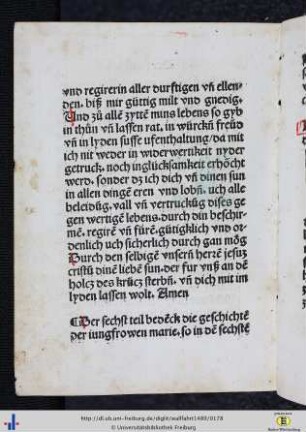 vnd regirerin aller durftigen vñ ellen-
den, biß mir güttig milt vnd gnedig.
Vnd zů allẽ zyttẽ mins lebens so gyb
in thůn vñ lassen rat, in würckñ freüd
vñ in lyden susse ufenthaltung/da mit
ich nit weder in widerwertikeit nyder
getruck, noch in glücksamkeit erhöcht
werd, sonder dz ich dich vñ dinen sun
in allen dingẽ eren vnd lobñ, uch alle
beleidũg, vall vñ vertruckũg dises ge
gen wertigẽ lebens, durch din beschir-
mẽ, regirẽ vñ fürẽ, gütigklich vnd or-
denlich uch sicherlich durch gan mög
Durch den selbigẽ vnsern herrẽ jesuʒ
cristũ dinẽ liebẽ sun, der fur vnß an dẽ
holcz des krücz sterbñ, vñ dich mit im
lyden lassen wolt, Amen
Der sechst teil bedeck die geschichtẽ
der iungfrowen marie, so in dẽ sechstẽ
http://dl.ub.uni-freiburg.de/diglit/wallfahrt1489/0178
© Universitätsbibliothek Freiburg